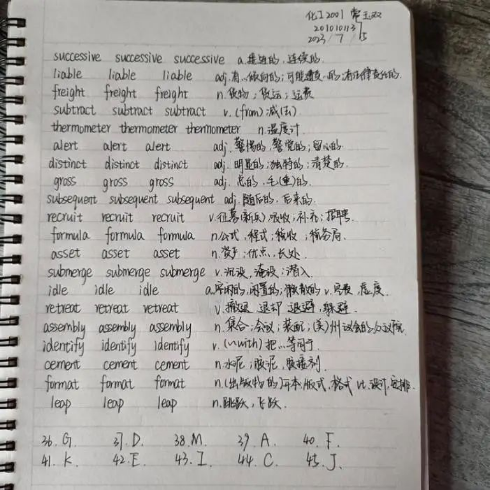 化工2001
2023/7/15
successive successive successive a.接连的,连续的.
liable liable liable adj.
freight freight freight n.货物;货运;运费
subtract subtract subtract v.(from)减(去)
thermometer thermometer thermometer n.温度计.
alert alert alert adj.警惕的,警觉的;留心的
distinct distinct distinct adj.明显的;独特的;清楚的.
gross gross gross adj.总的,毛(重)的.
subsequent subsequent subsequent adj.随后的,后来的.
recruit recruit recruit v.征募(新兵),吸收,补充;招聘.
formula formula formula n.公式,程式;
asset asset asset n.资产;优点,长处.
submerge submerge submerge v.沉没,淹没;潜入.
idle idle idle a.空闲的,闲置的;懒散的 v.
retreat retreat retreat v.撤退 退却 退避,躲避.
assembly assembly assembly n.集合,会议;装配,(美)州议会的众议院
identify identify identify v.(~with)把…等同于.
cement cement cement n.水泥;胶泥,胶接剂.
format format format n.(出版物的)开本,版式,格式 vt.设计,安排.
leap leap leap n.跳跃,飞跃.
36. G. 37. D. 38. M. 39. A. 40. F.
41. K. 42. E. 43. I. 44. C. 45. J.